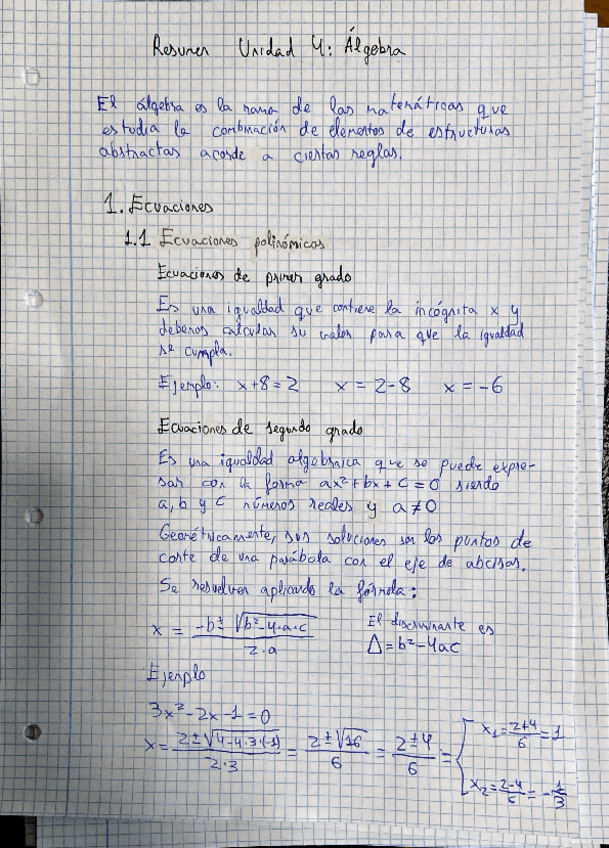 Resumen Unidad 4: Álgebra
El álgebra es la rama de las matemáticas que
estudia la combinación de elementos de estructuras
abstractas acorde a ciertas reglas.
1. Ecuaciones
1.1 Ecuaciones polinómicas
Ecuaciones de primer grado
Es una igualdad que contiene la incógnita x y
debemos calcular su valor para que la igualdad
se cumpla.
Ejemplo: x+8=2 x=2-8 x=-6
Ecuaciones de segundo grado
Es una igualdad algebraica que se puede expre-
sar con la forma ax²+bx+c=0 siendo
a, b y c números reales y a≠0
Geométricamente, sus soluciones son los puntos de
corte de una parábola con el eje de abcisas.
Se resuelven aplicando la fórmula:
x = (-b ± √(b²-4·a·c)) / (2·a) El discriminante es
Δ=b²-4ac
Ejemplo
3x²-2x-1=0
x = (2±√(4-4·3·(-1))) / (2·3) = (2±√16) / 6 = (2±4) / 6 = { x₁ = (2+4)/6 = 1
x₂ = (2-4)/6 = -1/3